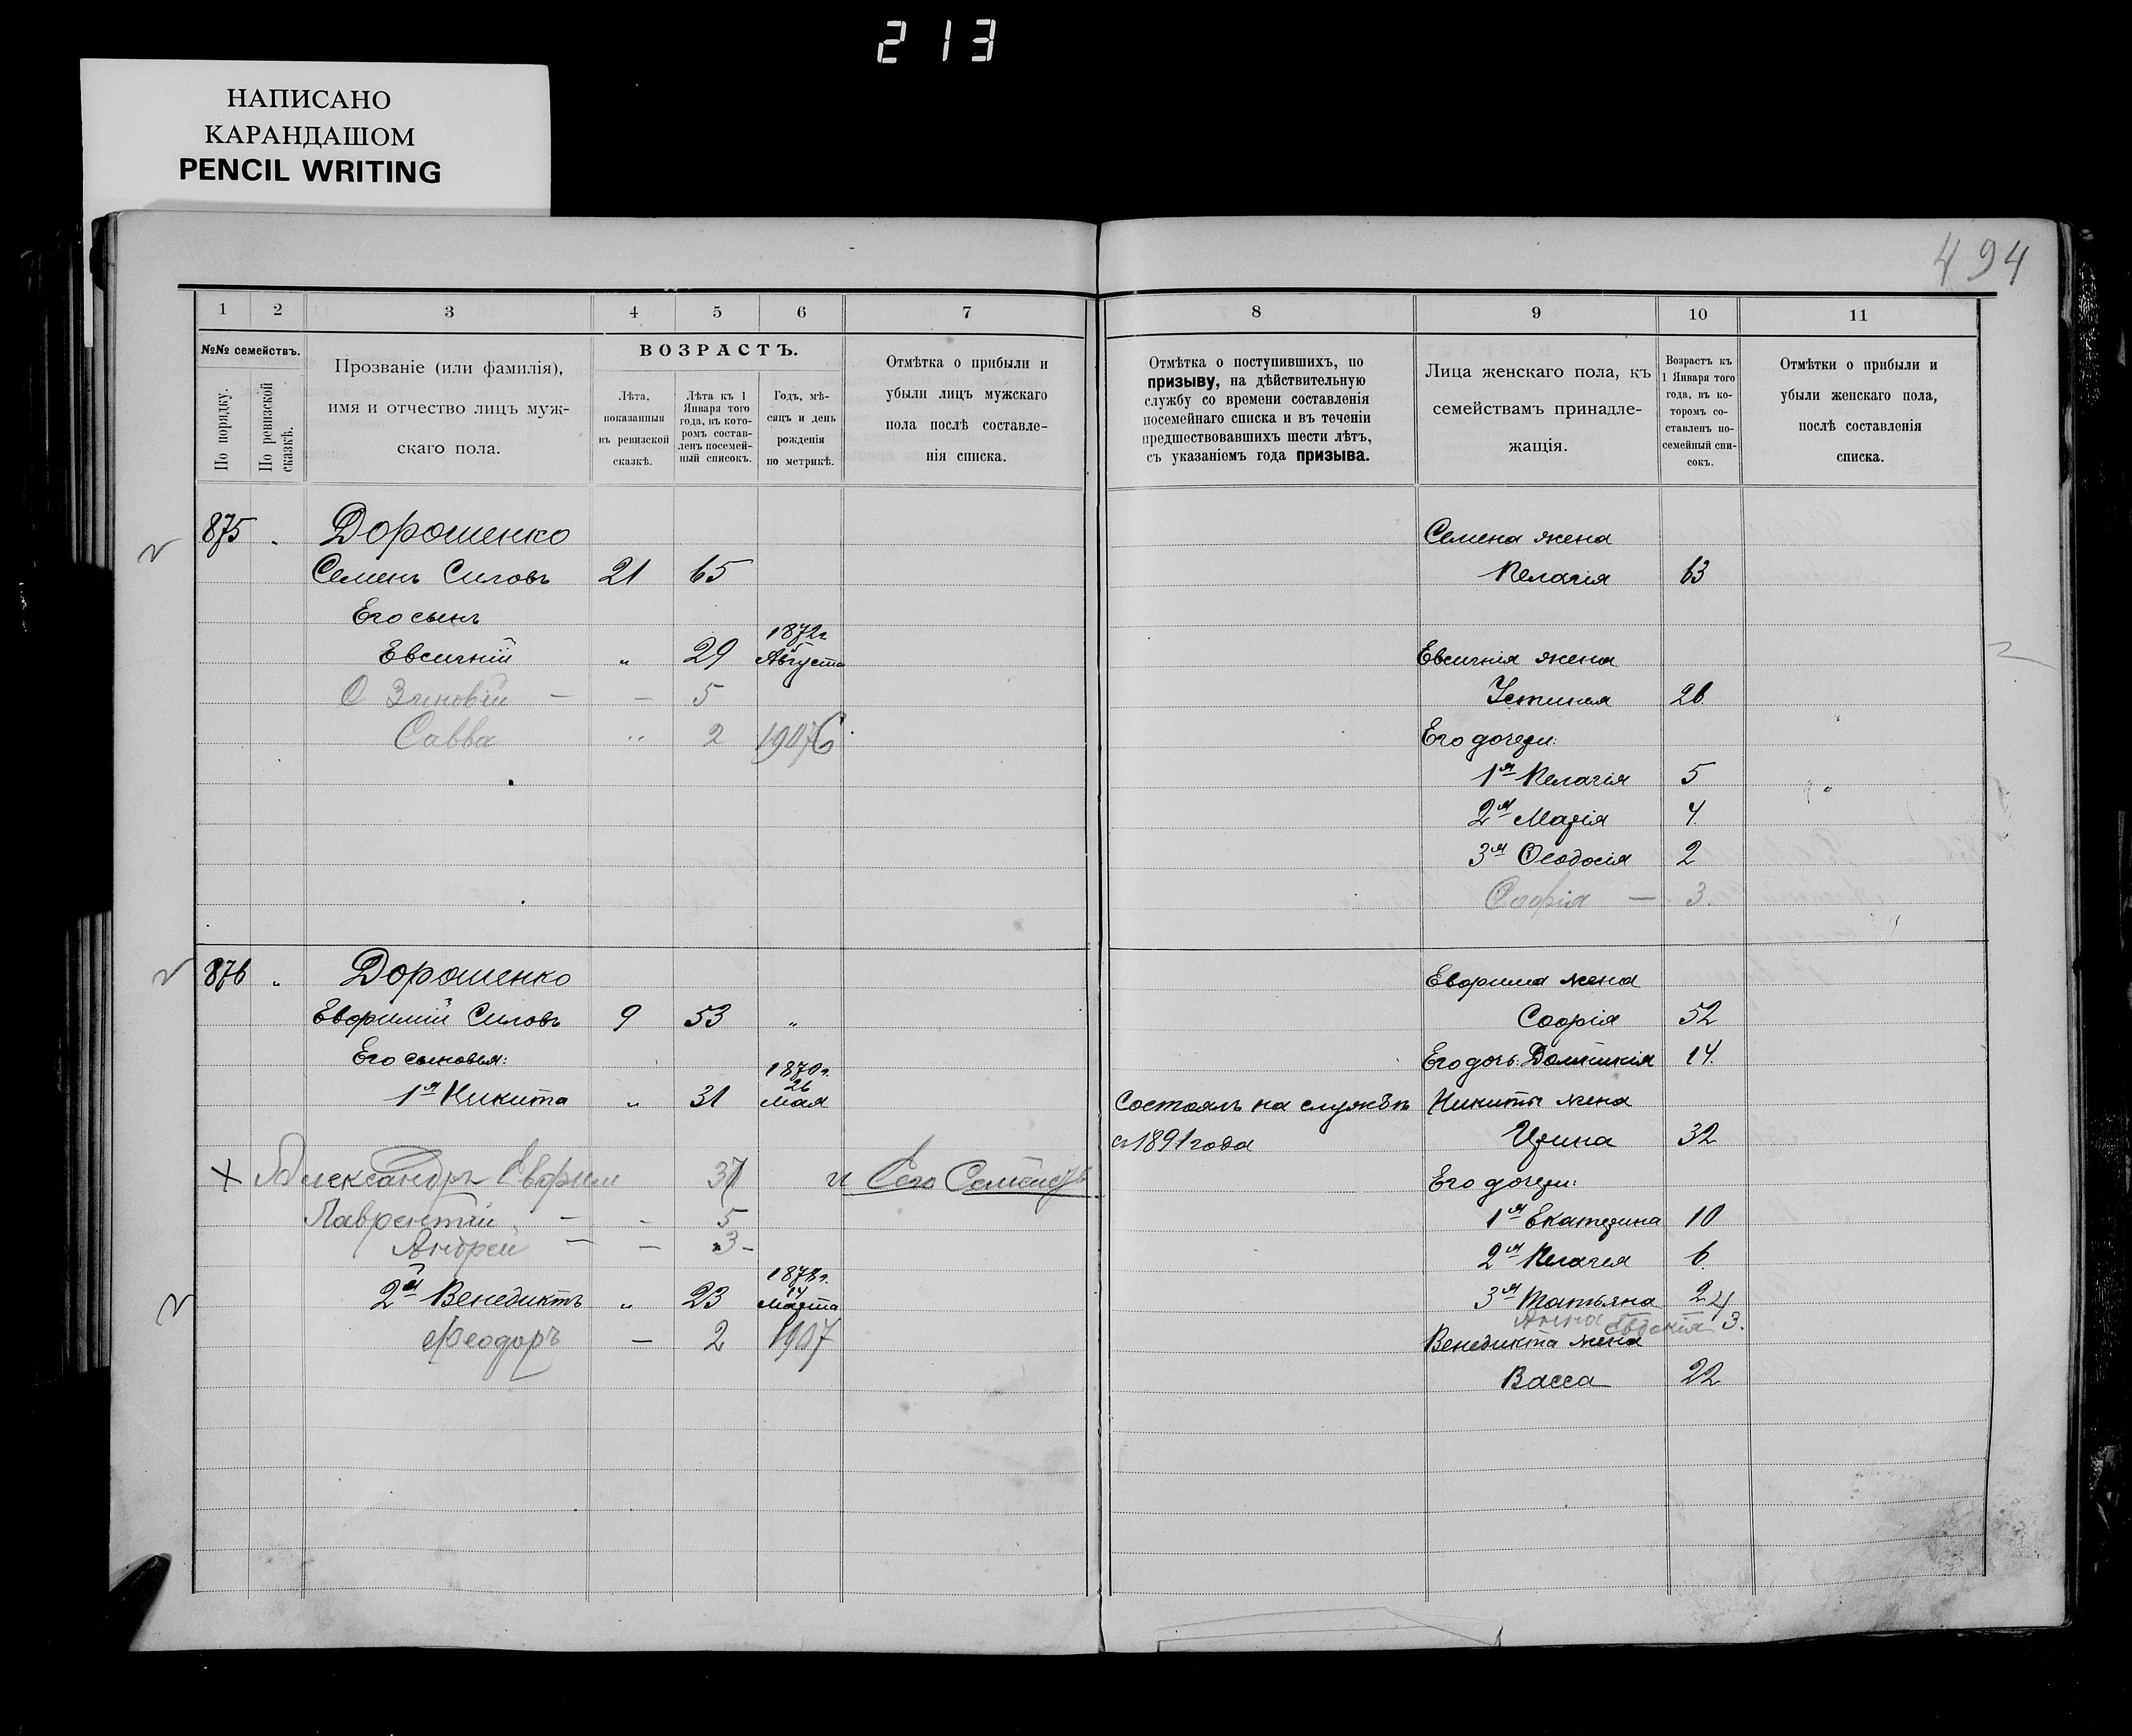 213
НАПИСАНО
КАРАНДАШОМ
PENCIL WRITING
494
1 2 3 4 5 6 7 8 9 10 11
№№ семействъ.
По порядку.
По ревизской сказкѣ.
Прозваніе (или фамилія),
имя и отчество лицъ муж-
скаго пола.
ВОЗРАСТЪ.
Лѣта,
показанныя
въ ревизской
сказкѣ.
Лѣта къ 1
Января того
года, въ кото-
ромъ состав-
ленъ посемей-
ный списокъ.
Годъ, мѣ-
сяцъ и день
рожденія
по метрикѣ.
Отмѣтка о прибыли и
убыли лицъ мужскаго
пола послѣ составле-
нія списка.
Отмѣтка о поступившихъ, по
призыву, на дѣйствительную
службу со времени составленія
посемейнаго списка и въ теченіи
предшествовавшихъ шести лѣтъ,
съ указаніемъ года призыва.
Лица женскаго пола, къ
семействамъ принадле-
жащія.
Возрастъ къ
1 Января того
года, въ ко-
торомъ со-
ставленъ по-
семейный спи-
сокъ.
Отмѣтки о прибыли и
убыли женскаго пола,
послѣ составленія
списка.
875 Дорошенко
Семенъ Силовъ 21 65
Его сынъ
Евсигній " 29 1872г. Августа
Зиновій — — 5
Савва " 2 1907 6
Семена жена
Пелагія 63
Евсигнія жена
Устинья 26
Его дочери:
1я Пелагія 5
2я Марія 4
3я Ѳеодосія 2
Софія — 3.
876 Дорошенко
Евфимій Силовъ 9 53 "
Его сыновья:
1й Никита " 31 1870г. 26 Мая
Александръ Евфим 37 и Его Семейств
Лаврентій — — 5
Андрей — — 3 -
2й Венедиктъ " 23 1878г. 14 Марта
Феодоръ — 2 1907
Состоялъ на службѣ
съ 1891 года
Евфима жена
Софія 52
Его дочь: Домникія 14.
Никиты жена
Ирина 32
Его дочери:
1я Екатерина 10
2я Пелагея 6.
3я Татьяна 2
Анна Евдокія 4 3.
Венедикта жена
Васса 22